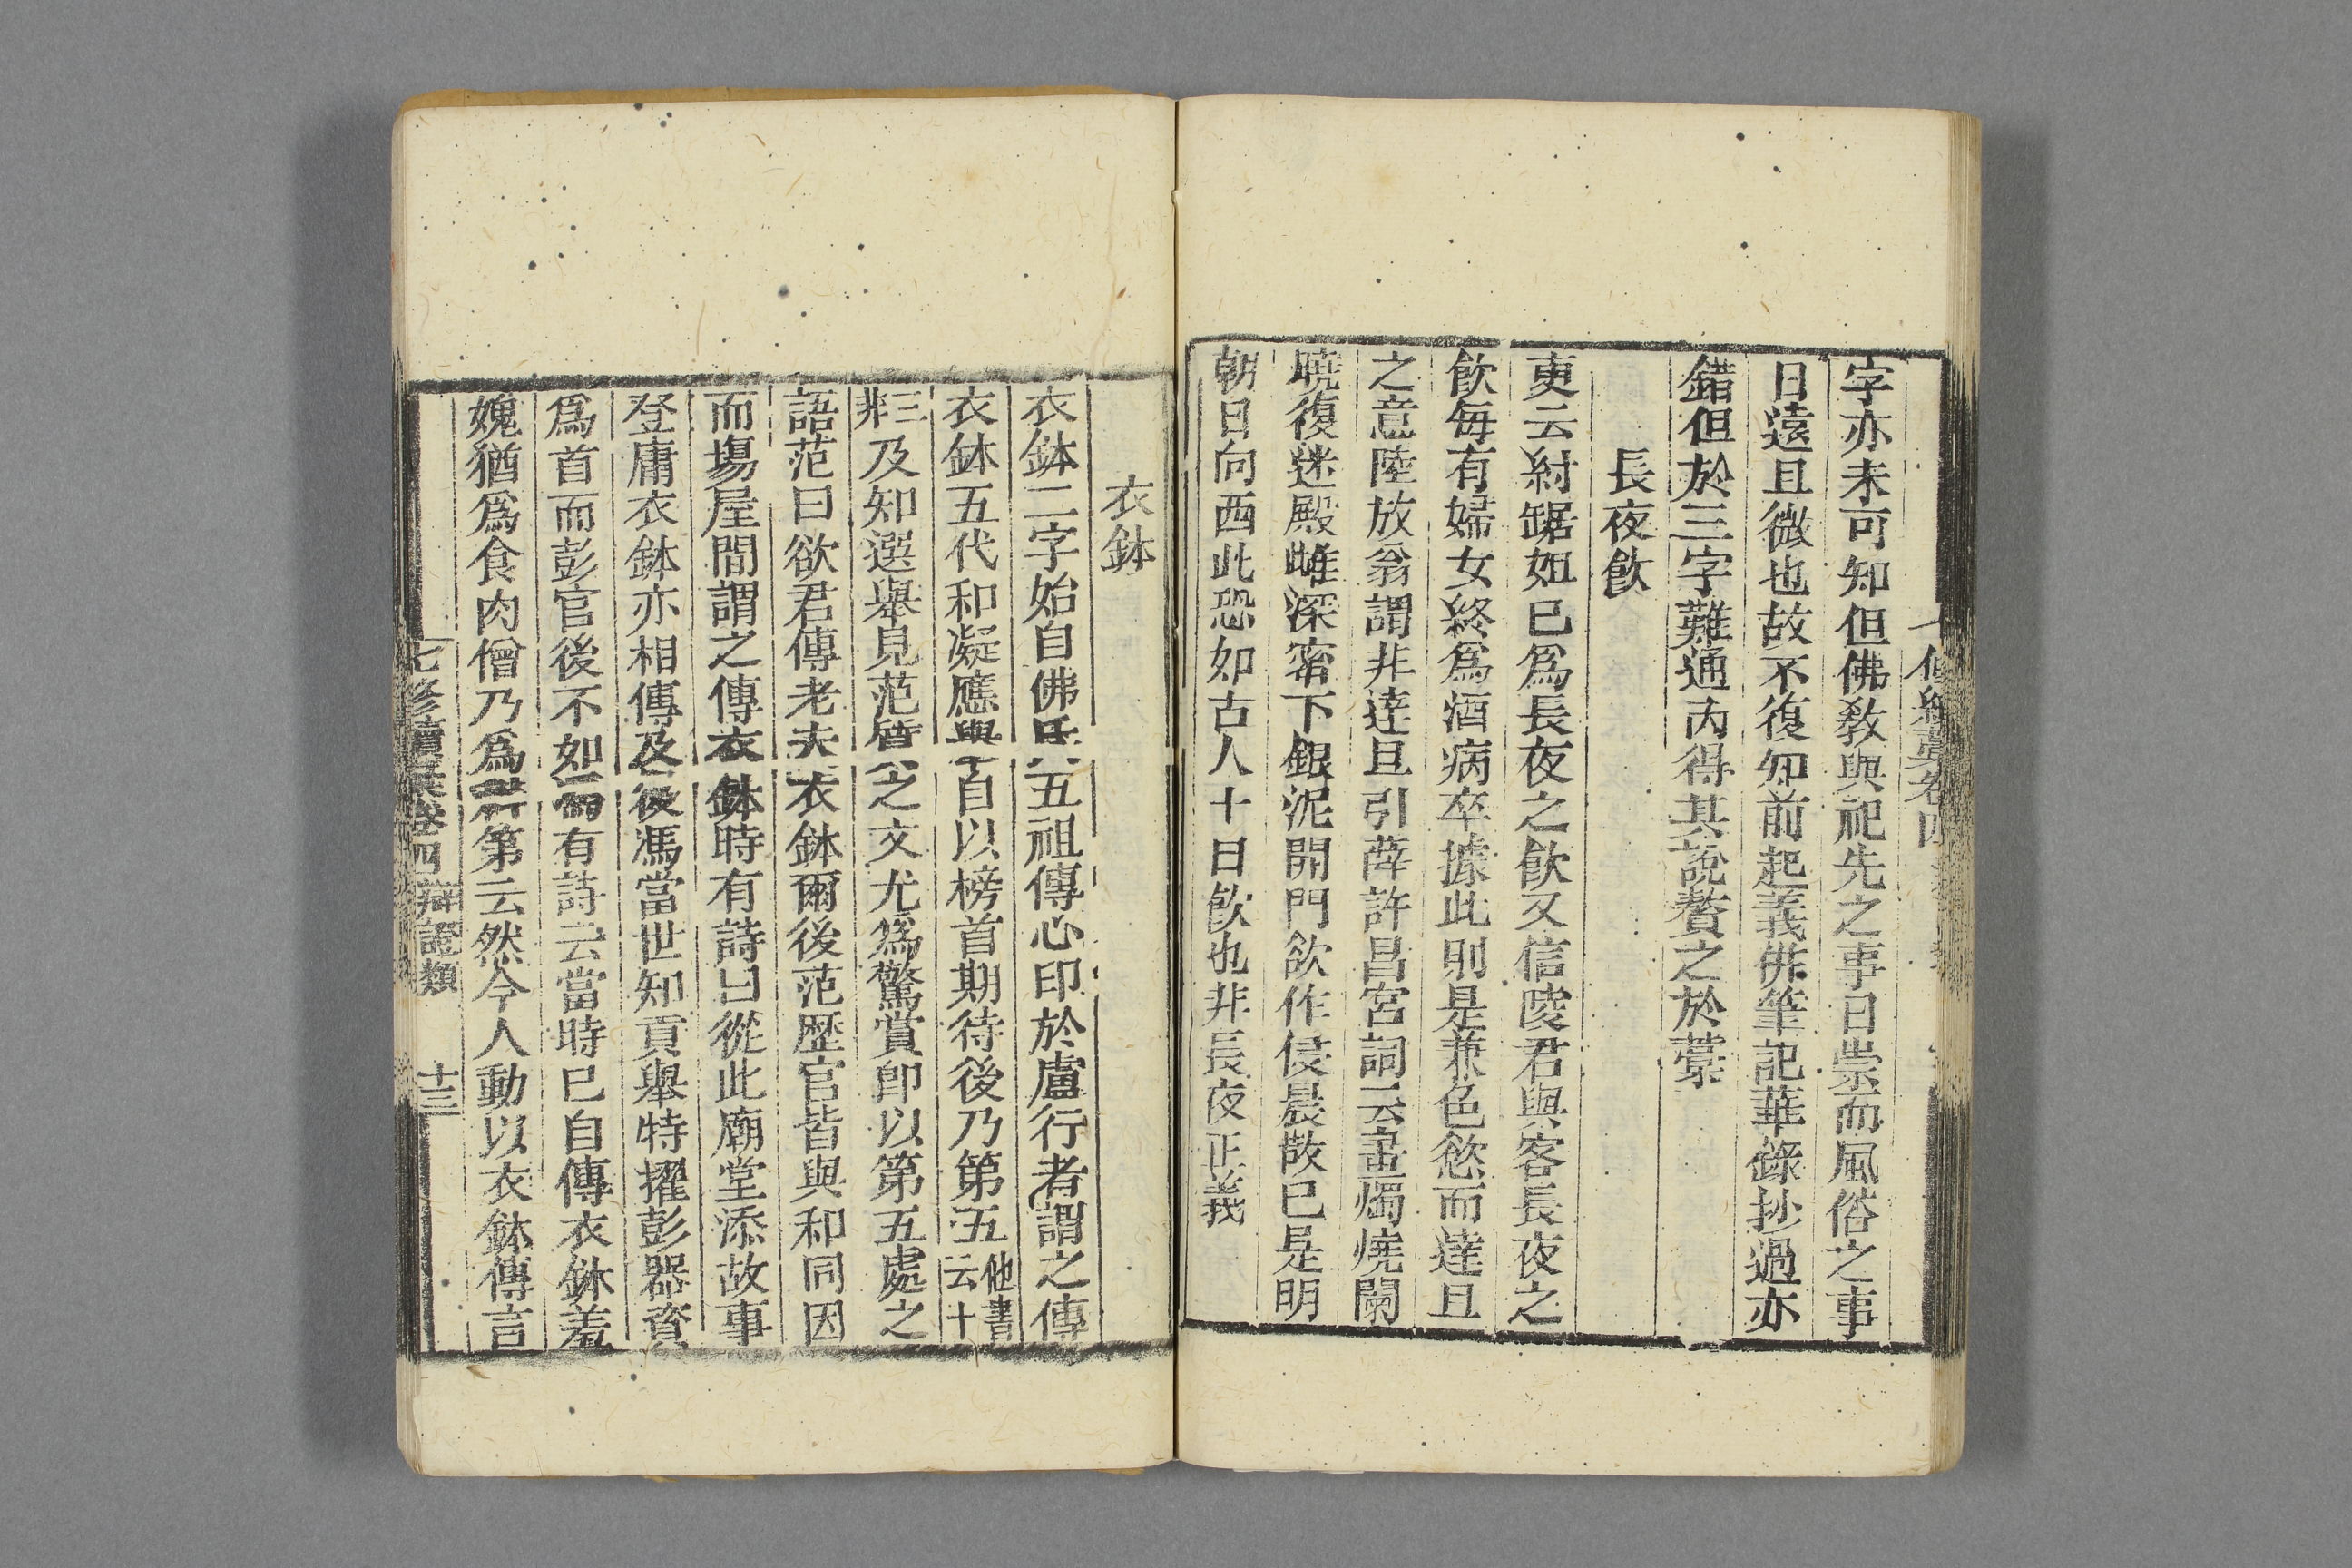 字亦未可知但佛教與祀先之事日崇而風俗之事
日遠且微也故不復知前起義佛筆記華錄抄過亦
錯但於三字難通內得其說贅之於藁
長夜飲
吏云紂踞妲己爲長夜之飲又信陵君與客長夜之
飲每有婦女終爲酒病卒據此則是兼色慾而達旦
之意陸放翁謂非達旦引薛許昌宮詞云畫燭燒闌
曉復迷殿帷深密下銀泥開門欲作侵晨散已是明
朝日向西此恐如古人十日飲也非長夜正義
衣鉢
衣鉢二字始自佛氏五祖傳心印於盧行者謂之傳
衣鉢五代和凝應舉自以榜首期待後乃第五他書云十
三非及知選舉見范質之文尤爲驚賞卽以第五處之
語范曰欲君傳老夫衣鉢爾後范歷官皆與和同因
而場屋間謂之傳衣鉢時有詩曰從此廟堂添故事
登庸衣鉢亦相傳及後馮當世知貢舉特擢彭器資
爲首而彭官後不如有詩云當時已自傳衣鉢羞
媿猶爲食肉僧乃爲第云然今人動以衣鉢傳言
七修續藁卷四 辯證類 十三